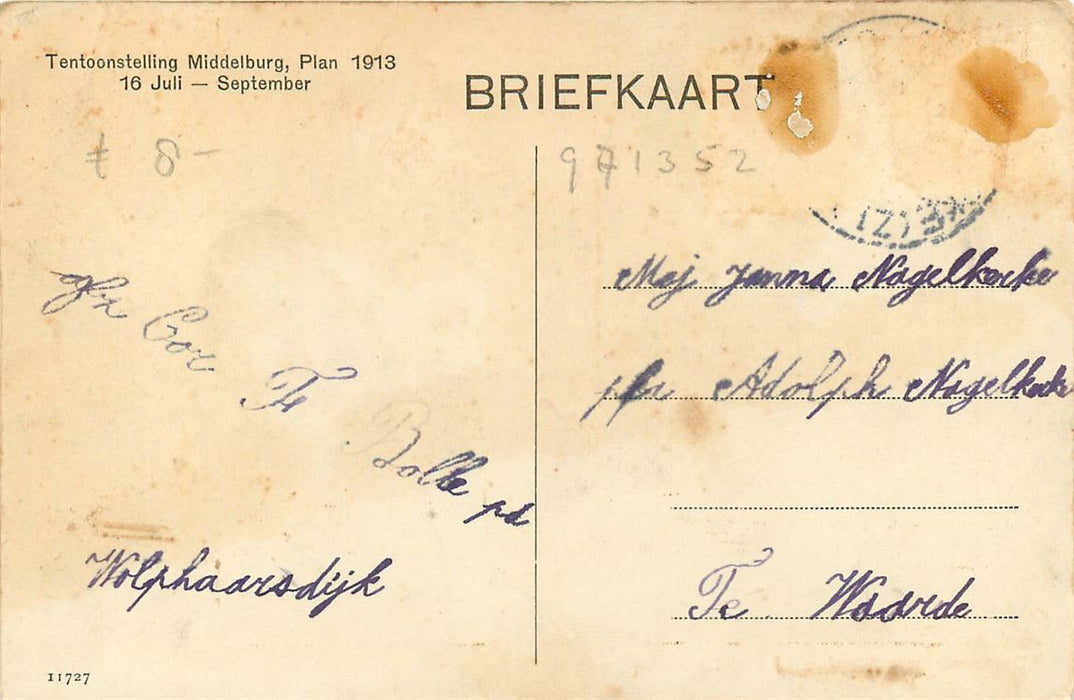 Tentoonstelling Middelburg, Plan 1913
16 Juli — September
BRIEFKAART
8-
971352
afz Cor Fr Bolle pd
Wolphaarsdijk
Mej Janna Nagelkerke
p/a Adolph Nagelkerke
Te Waarde
11727